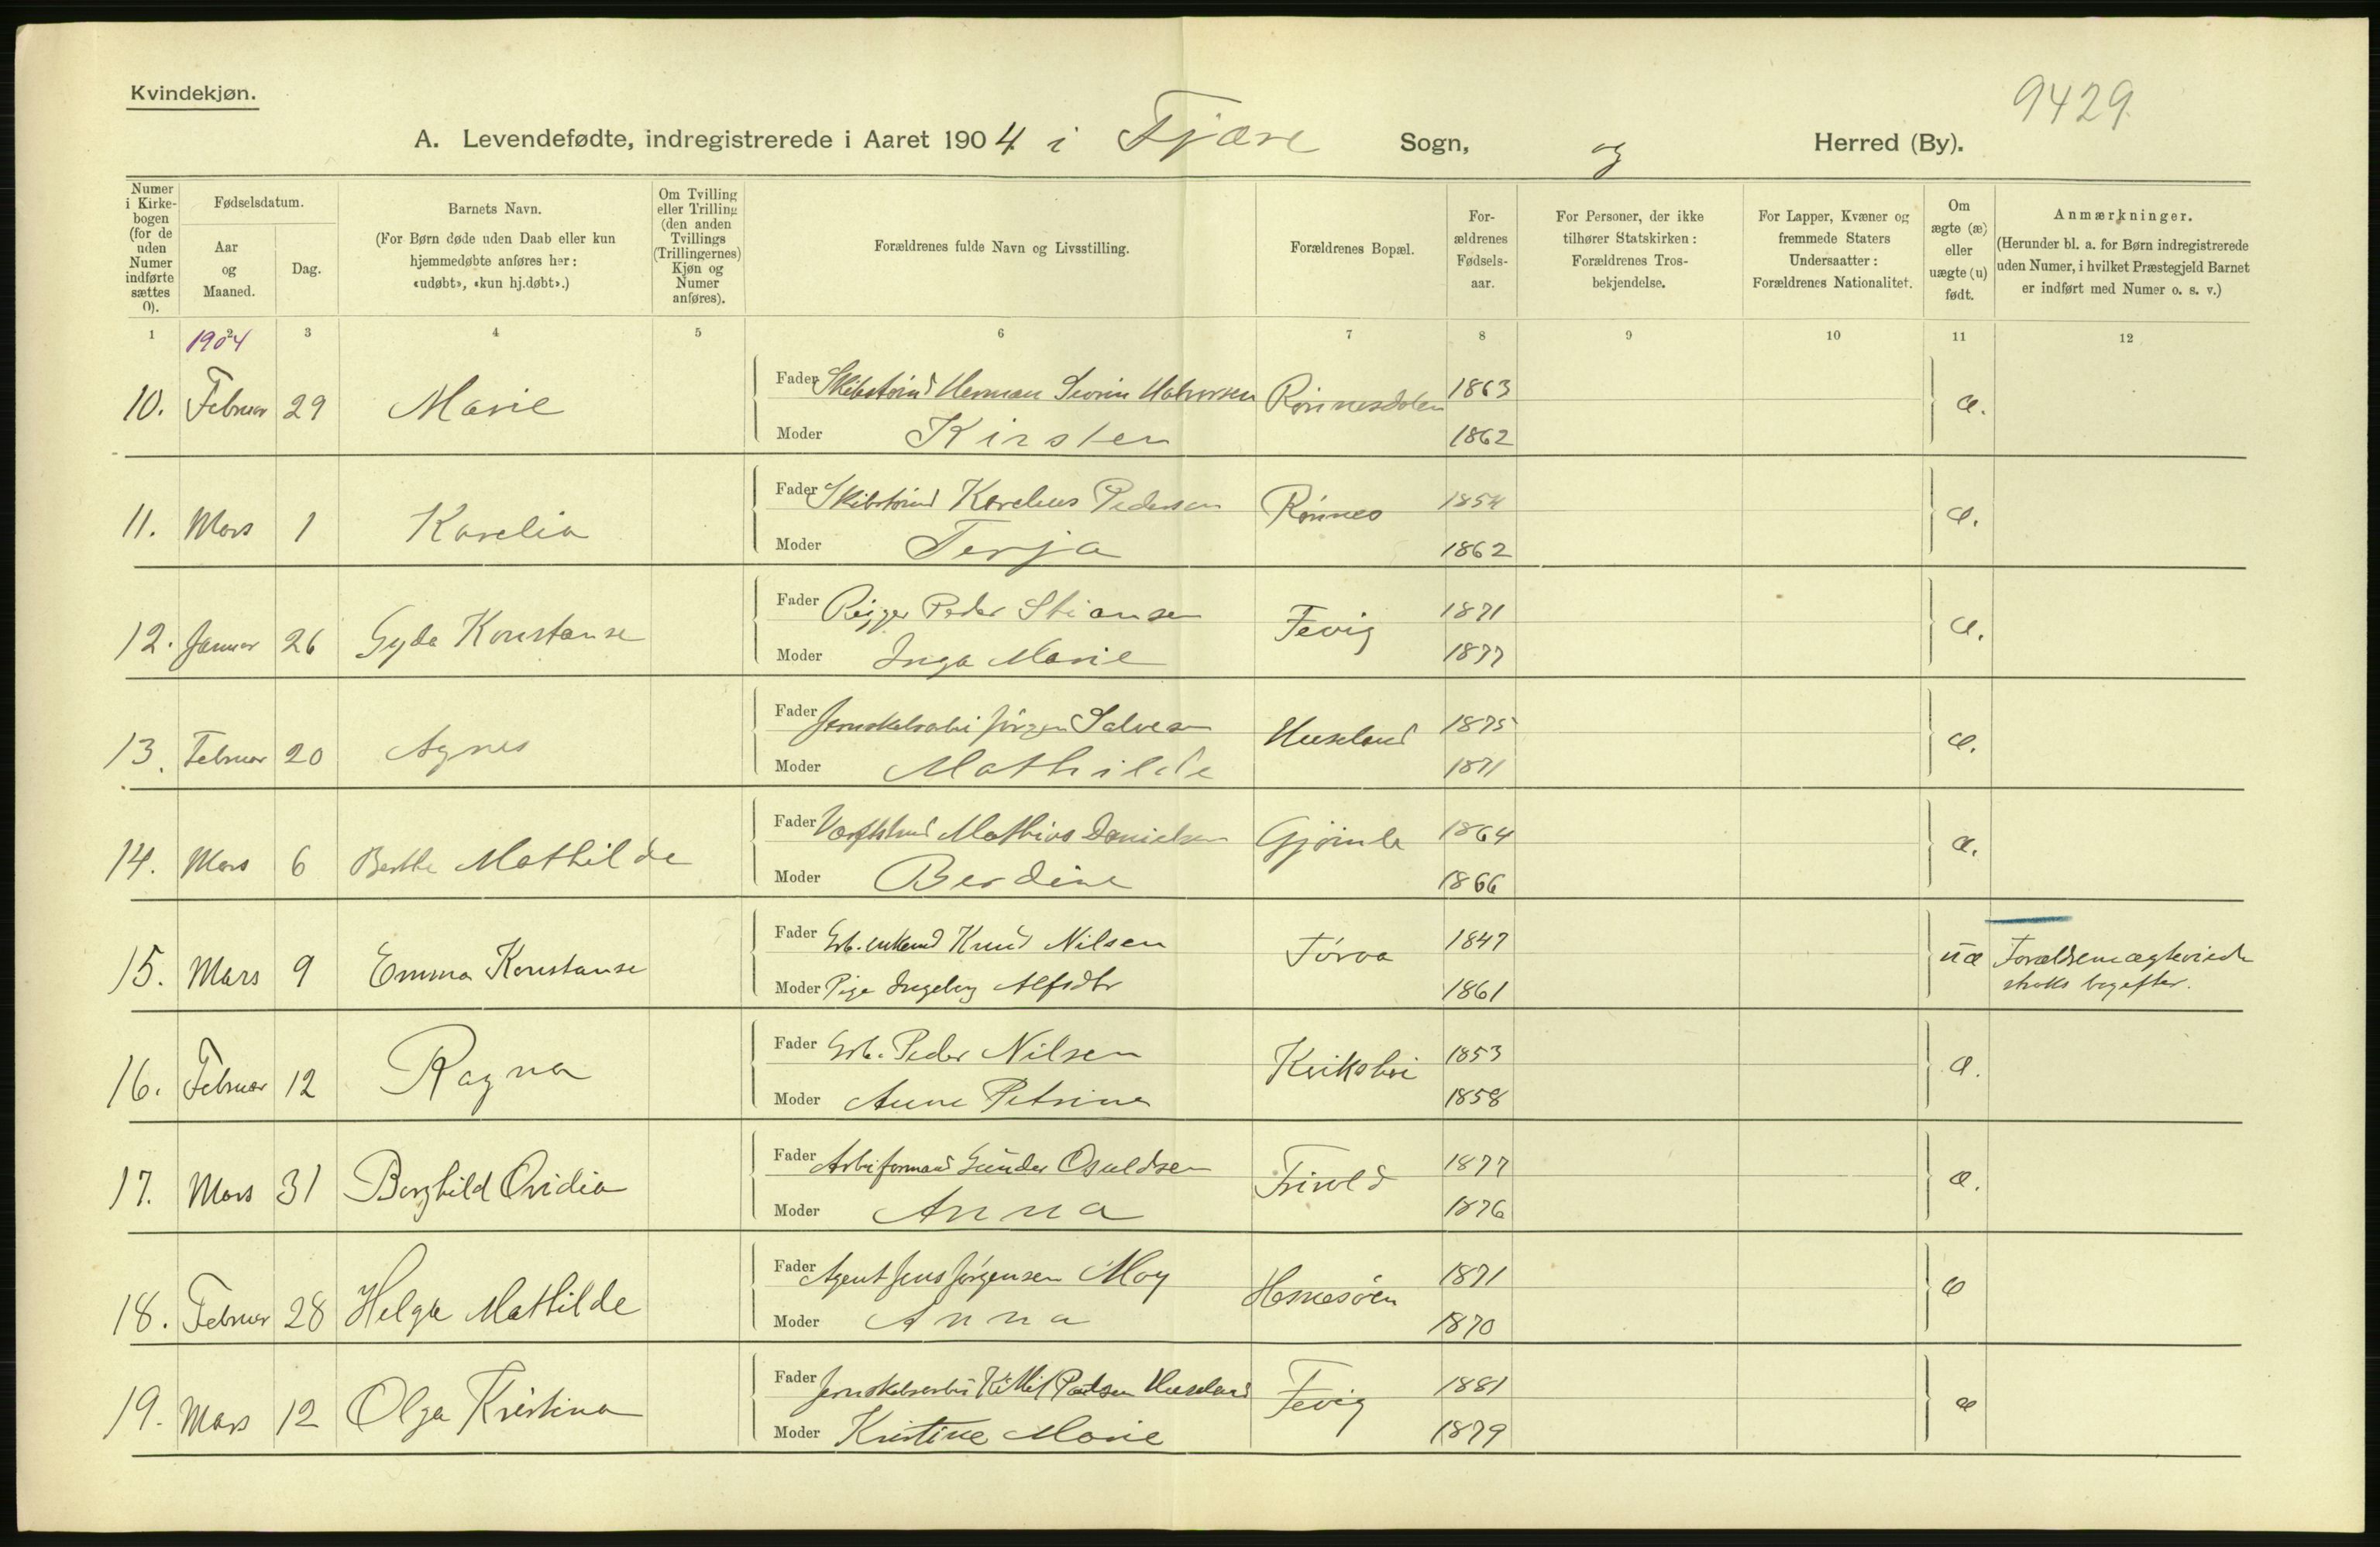 Kvindekjøn.
9429.
A. Levendefødte, indregistrerede i Aaret 1904 i Fjære Sogn, og Herred (By).
Numer i Kirkebogen (for de uden Numer indførte sættes 0).
Fødselsdatum.
Aar og Maaned.
Dag.
Barnets Navn.
(For Børn døde uden Daab eller kun hjemmedøbte anføres her: «udøbt», «kun hj.døbt».)
Om Tvilling eller Trilling (den anden Tvillings (Trillingernes) Kjøn og Numer anføres).
Forældrenes fulde Navn og Livsstilling.
Forældrenes Bopæl.
Forældrenes Fødselsaar.
For Personer, der ikke tilhører Statskirken: Forældrenes Trosbekjendelse.
For Lapper, Kvæner og fremmede Staters Undersaatter: Forældrenes Nationalitet.
Om ægte (æ) eller uægte (u) født.
Anmærkninger.
(Herunder bl. a. for Børn indregistrerede uden Numer, i hvilket Præstegjeld Barnet er indført med Numer o. s. v.)
1 2 3 4 5 6 7 8 9 10 11 12
1904
10. Februar 29 Marie Fader Herman Severin Halvorsen Rønnesdalen 1863 æ.
Moder Kirsten 1862
11. Mars 1 Karelia Fader Karelius Pedersen Rønnes 1854 æ.
Moder Terja 1862
12. Januar 26 Gyda Konstanse Fader Rigger Peder Stiansen Fevig 1871 æ.
Moder Inga Marie 1877
13. Februar 20 Agnes Fader Jørgen Salvesen Huseland 1875 æ.
Moder Mathilde 1871
14. Mars 6 Berthe Mathilde Fader Mathias Danielsen 1864 æ.
Moder Berdine 1866
15. Mars 9 Emma Konstanse Fader Knud Nilsen 1847 uæ
Moder Pige Ingeborg Alfsdtr 1861 straks bagefter.
16. Februar 12 Ragna Fader Peder Nilsen 1853 æ.
Moder Anne Petrine 1858
17. Mars 31 Borghild Ovidia Fader Arbeiformand Gunder Osuldsen Frivold 1877 æ.
Moder Anna 1876
18. Februar 28 Helga Mathilde Fader Agent Jens Jørgensen Moy Hesnesøen 1871 æ
Moder Anna 1870
19. Mars 12 Olga Kristina Fader Huseland Fevig 1881 æ
Moder Kristine Marie 1879